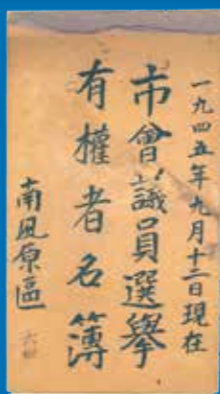 一九四五年九月十二日現在
市會議員選擧
有權者名簿
南風原區